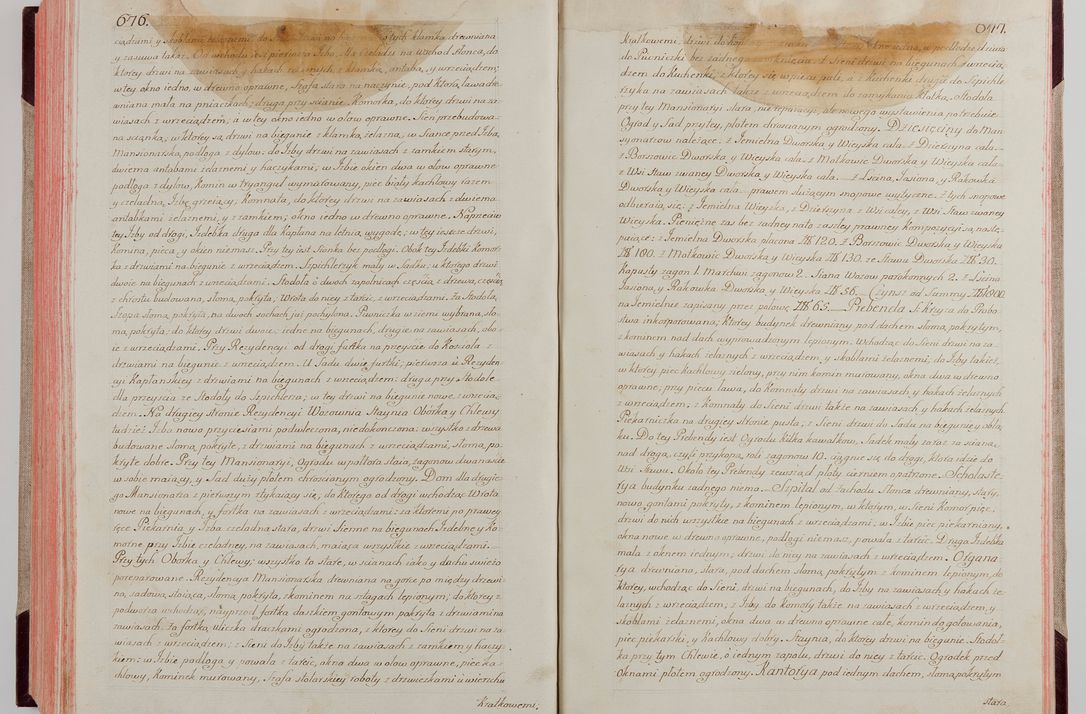 676.
y zasuwa takaż. Od wchodu iest pierwsza Izba. Dla Czeladzi na wschod słonca, do
ktorey drzwi na zawiasach y hakach żelaznych z klamką, antabą, y wrzeciądzem;
w tey okno iedno, w drewno oprawne, Szafa stara na naczynie, pod ktorą ława dre-
wniana mała na pniaczkach, druga przy scianie. Komorka, do ktorey drzwi na za-
wiasach z wrzeciądzem; á w tey okno iedno w ołow oprawne. Sien przebudowa-
na scianką, w ktorey są drzwi na biegunie z klamką żelazną, w Siance przed Izbą
Mansionarską, podłoga z dylow: do Izby drzwi na zawiasach z zamkiem starym,
dwiema antabami żelaznemi, y haczykami; w Izbie okien dwa w ołow oprawne
podłoga z dylow, Komin w tryanguł wymurowany, piec biały kachlowy razem
y czeladną Izbę grzeiący; Komnata, do ktorey drzwi na zawiasach z dwiema
antabkami żelaznemi, y z zamkiem; okno iedno w drewno oprawne. Naprzeciw
tey Izby od drogi, Izdebka druga dla Kapłana na letnią wygodę; w tey ieszcze drzwi,
Komina, pieca, y okien niemasz. Przy tey iest Sianka bez podłogi. Obok tey Izdebki Komor-
ka z drzwiami na biegunie z wrzeciądzem. Szpichlerzyk mały w Sadku; w ktorego drzwi
dwoie na biegunach z wrzeciądzami. Stodoła o dwoch zapolnicach częscią z drzewa, częscią
z chrostu budowana, słomą pokryta; Wrota do niey z tarcic, z wrzeciądzami. Za Stodołą,
Szopa słomą pokryta, na dwoch sochach iuż pochylona. Piwniczka w ziemi wybrana, sło-
mą pokryta: do ktorey drzwi dwoie; iedne na biegunach, drugie na zawiasach, obo-
ie z wrzeciądzami. Przy Rezydencyi od drogi furtka na przeyscie do Koscioła z
drzwiami na biegunie z wrzeciądzem. U Sadu dwie fortki; pierwsza u Rezyden-
cyi Kapłanskiey z drzwiami na biegunach z wrzeciądzem: druga przy Stodole
dla przeyscia ze Stodoły do Szpichlerza; w tey drzwi na biegunie nowe z wrzecią-
dzem. Na drugiey stronie Rezydencyi Wozownia Staynia Oborka y Chlewy
tudzież Izba nowo przyciesiami podwleczona, niedokonczona: wszystko z drzewa
budowane słomą pokryte, z drzwiami na biegunach z wrzeciądzami, słomą po-
kryte dobre. Przy tey Mansionaryi, Ogrodu wpołtora staia, zagonow dwanascie
w sobie maiący, y Sad duży płotem chroscianym ogrodzony. Dom dla drugie-
go Mansionarza z pierwszym stykaiący się, do ktorego od drogi wchodząc Wrota
nowe na biegunach, y fortka na zawiasach z wrzeciądzami: za ktoremi po prawey
ręce Piekarnia y Izba czeladna stara, drzwi Sienne na biegunach Izdebne y Ko-
morne przy Izbie czeladney, na zawiasach, maiące wszystkie z wrzeciądzami.
Przy tych Oborka, y Chlewy: wszystko to stare, w scianach iako y dachu swieżo
poreparowane. Rezydencya Mansionarska drewniana na gorce po między drzewi-
ną, sadową, stoiąca, słomą pokryta, z kominem na szlagach lepionym; do ktorey z
podworza wchodząc, nayprzod fortka daszkiem gontowym pokryta, z drzwiami na
zawiasach. Za fortką, uliczka draczkami ogrodzona, z ktorey do Sieni drzwi na za-
wiasach z wrzeciądzem; z Sieni do Izby także na zawiasach z zamkiem y haczy-
kiem: w Izbie podłoga y powała z tarcic, okna dwa w ołow oprawne, piec ka-
chlowy, Kominek murowany, Szafa stolarskiey roboty z drzwiczkami u wierzchu
Kratkowemi;
677.
do Piwniczki bez żadnego zamknięcia. Z Sieni drzwi na biegunach z wrzecią-
dzem do Kuchenki, z ktorey się w piecu pali, á z Kuchenki drugie do Szpichle-
rzyka na zawiasach także z wrzeciądzem do zamykania kłotka. Stodoła
przy tey Mansionaryi stara, nie reparacyi, ale nowego wystawienia potrzebuie.
Ogrod y Sad przy tey, płotem chrosianym ogrodzony. Dziesięciny do Man-
syonarzow należące: z Jemielna Dworska y Wieyska cała. z Dzierszyna cała
z Borszowic Dworska, y Wieyska cała. z Małkowic Dworska y Wieyska cała
z Wsi Staw zwaney Dworska, y Wieyska cała. z Łscina, Jasiona, y Rakowka
Dworska y Wieyska cała prawem służącym snopowe wytyczne. Z tych snopowe
odbieraią się: z Jemielna Wieyska, z Dzierszyna z Wsi całey, z Wsi Staw zwaney
Wieyska. Pieniężne zaś bez żadney na to zaszłey prawney Kompozycyi są nastę-
puiące: z Jemielna Dworska płacona Zł 120. z Borszowic Dworska, y Wieyska
Zł 100. z Małkowic Dworska, y Wieyska Zł 130. ze Stawu Dworska Zł 30.
Kapusty zagon 1. Marchwi zagonow 2. Siana Wozow parokonnych 2. z Łscina
Jasiona, y Rakowka. Dworska, y Wieyska Zł 56. Czynsz od Summy Zł 1000.
na Jemielnie zapisany przez połowę Zł 65. Prebenda S. Krzyża do Probo-
stwa inkorporowana; ktorey budynek drewniany pod dachem słomą pokrytym,
z kominem nad dach wyprowadzonym lepionym. Wchodząc do Sieni drzwi na za-
wiasach y hakach żelaznych z wrzeciądzem, y skoblami żelaznemi; do Izby takież,
w ktorey piec kachlowy zielony, przy nim komin murowany, okna dwa w drewno
oprawne; przy piecu ława, do Komnaty drzwi na zawiasach, y hakach żelaznych
z wrzeciądzem; z Komnaty do Sieni drzwi także na zawiasach y hakach żelaznych
Piekarniczka na drugiey stronie pusta, z Sieni drzwi do Sadu na biegunie y obłą-
ku. Do tey Prebendy iest Ogrodu kilka kawałkow, Sadek mały zaraz za scianą
nad drogą, czyli przykopą, roli zagonow 10. ciągnie się do drogi, ktora idzie do
Wsi Stawu. Około tey Prebendy zewsząd płoty cierniem opatrzone. Scholaste-
rya budynku żadnego niema. Szpital od zachodu słonca drewniany, stary,
nowo gontami pokryty, z kominem lepionym, w ktorym, w Sieni Komor pięc,
drzwi do nich wszystkie na biegunach z wrzeciądzami, w Izbie piec piekarniany,
okna nowe w drewno oprawne, podłogi niemasz, powała z tarcic. Druga Izdebka
mała z oknem iednym; drzwi do niey na zawiasach z wrzeciądzem. Organa-
rya drewniana, stara, pod dachem słomą pokrytym z kominem lepionym, do
ktorey, wchodząc do Sieni, drzwi na biegunach, do Izby na zawiasach y hakach że-
laznych z wrzeciądzem; z Izby do komory także na zawiasach z wrzeciądzem, y
skoblami żelaznemi, okna dwa w drewno oprawne całe, komin do gotowania,
piec piekarski, y kachlowy dobry. Staynia, do ktorey drzwi na biegunie. Stodoł-
ka przy tym Chlewie, o iednym zapolu, drzwi do niey z tarcic. Ogrodek przed
Oknami płotem ogrodzony. Kantorya pod iednym dachem, słomą pokrytym
stara